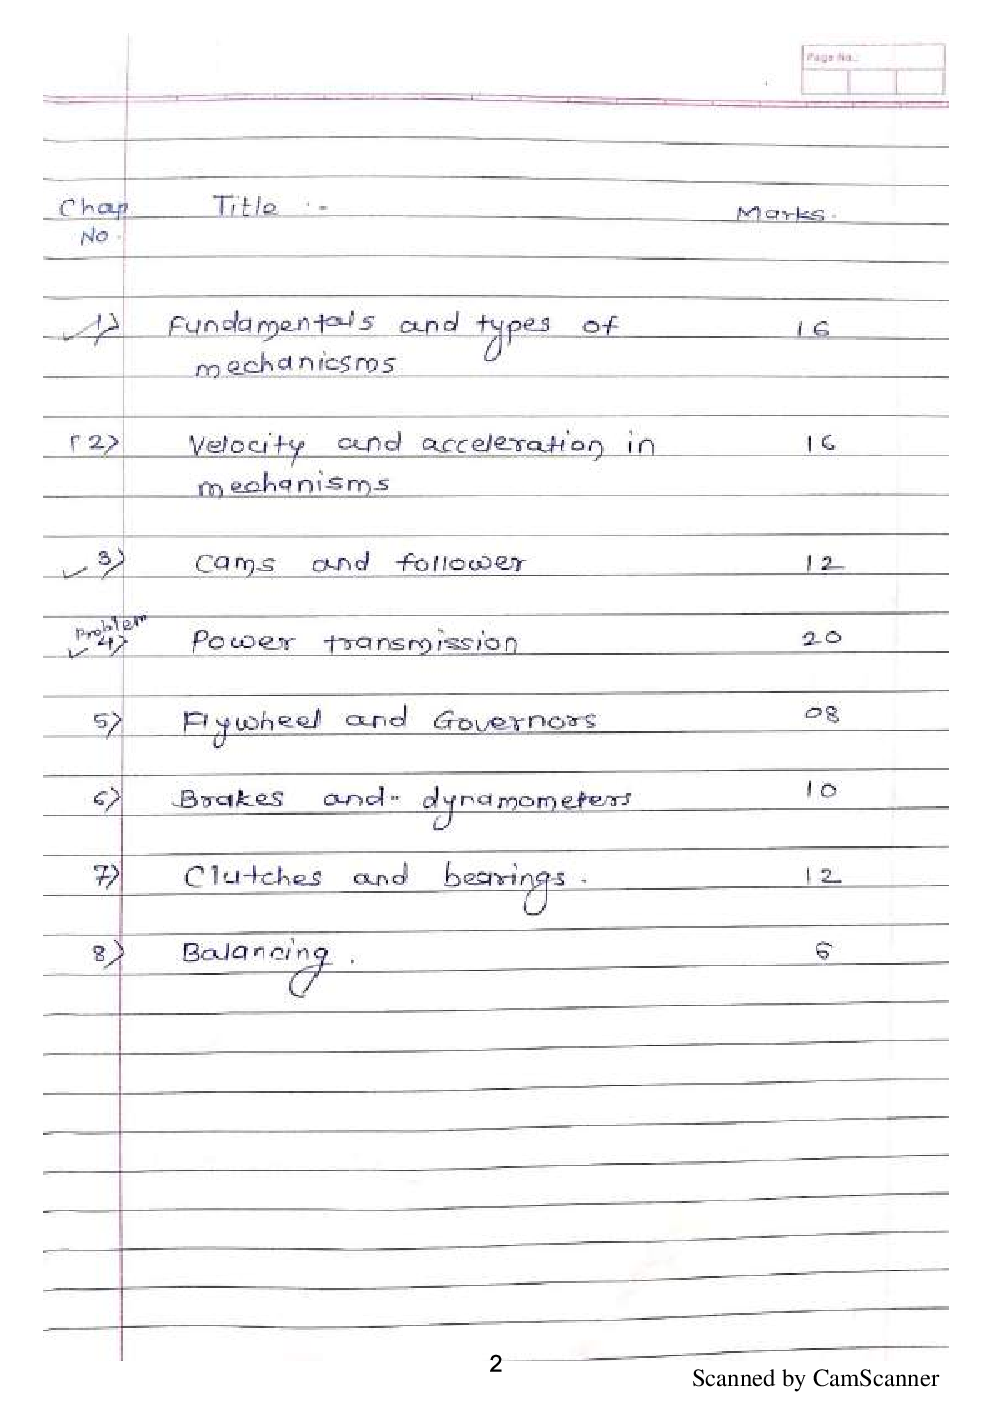 Page No.:
Chap. Title :- Marks.
No.
1) Fundamentals and types of 16
mechanicsms
2) Velocity and acceleration in 16
mechanisms
3) Cams and follower 12
Problem
4) Power transmission 20
5) Flywheel and Governors 08
6) Brakes and dynamometers 10
7) Clutches and bearings. 12
8) Balancing. 6
2
Scanned by CamScanner